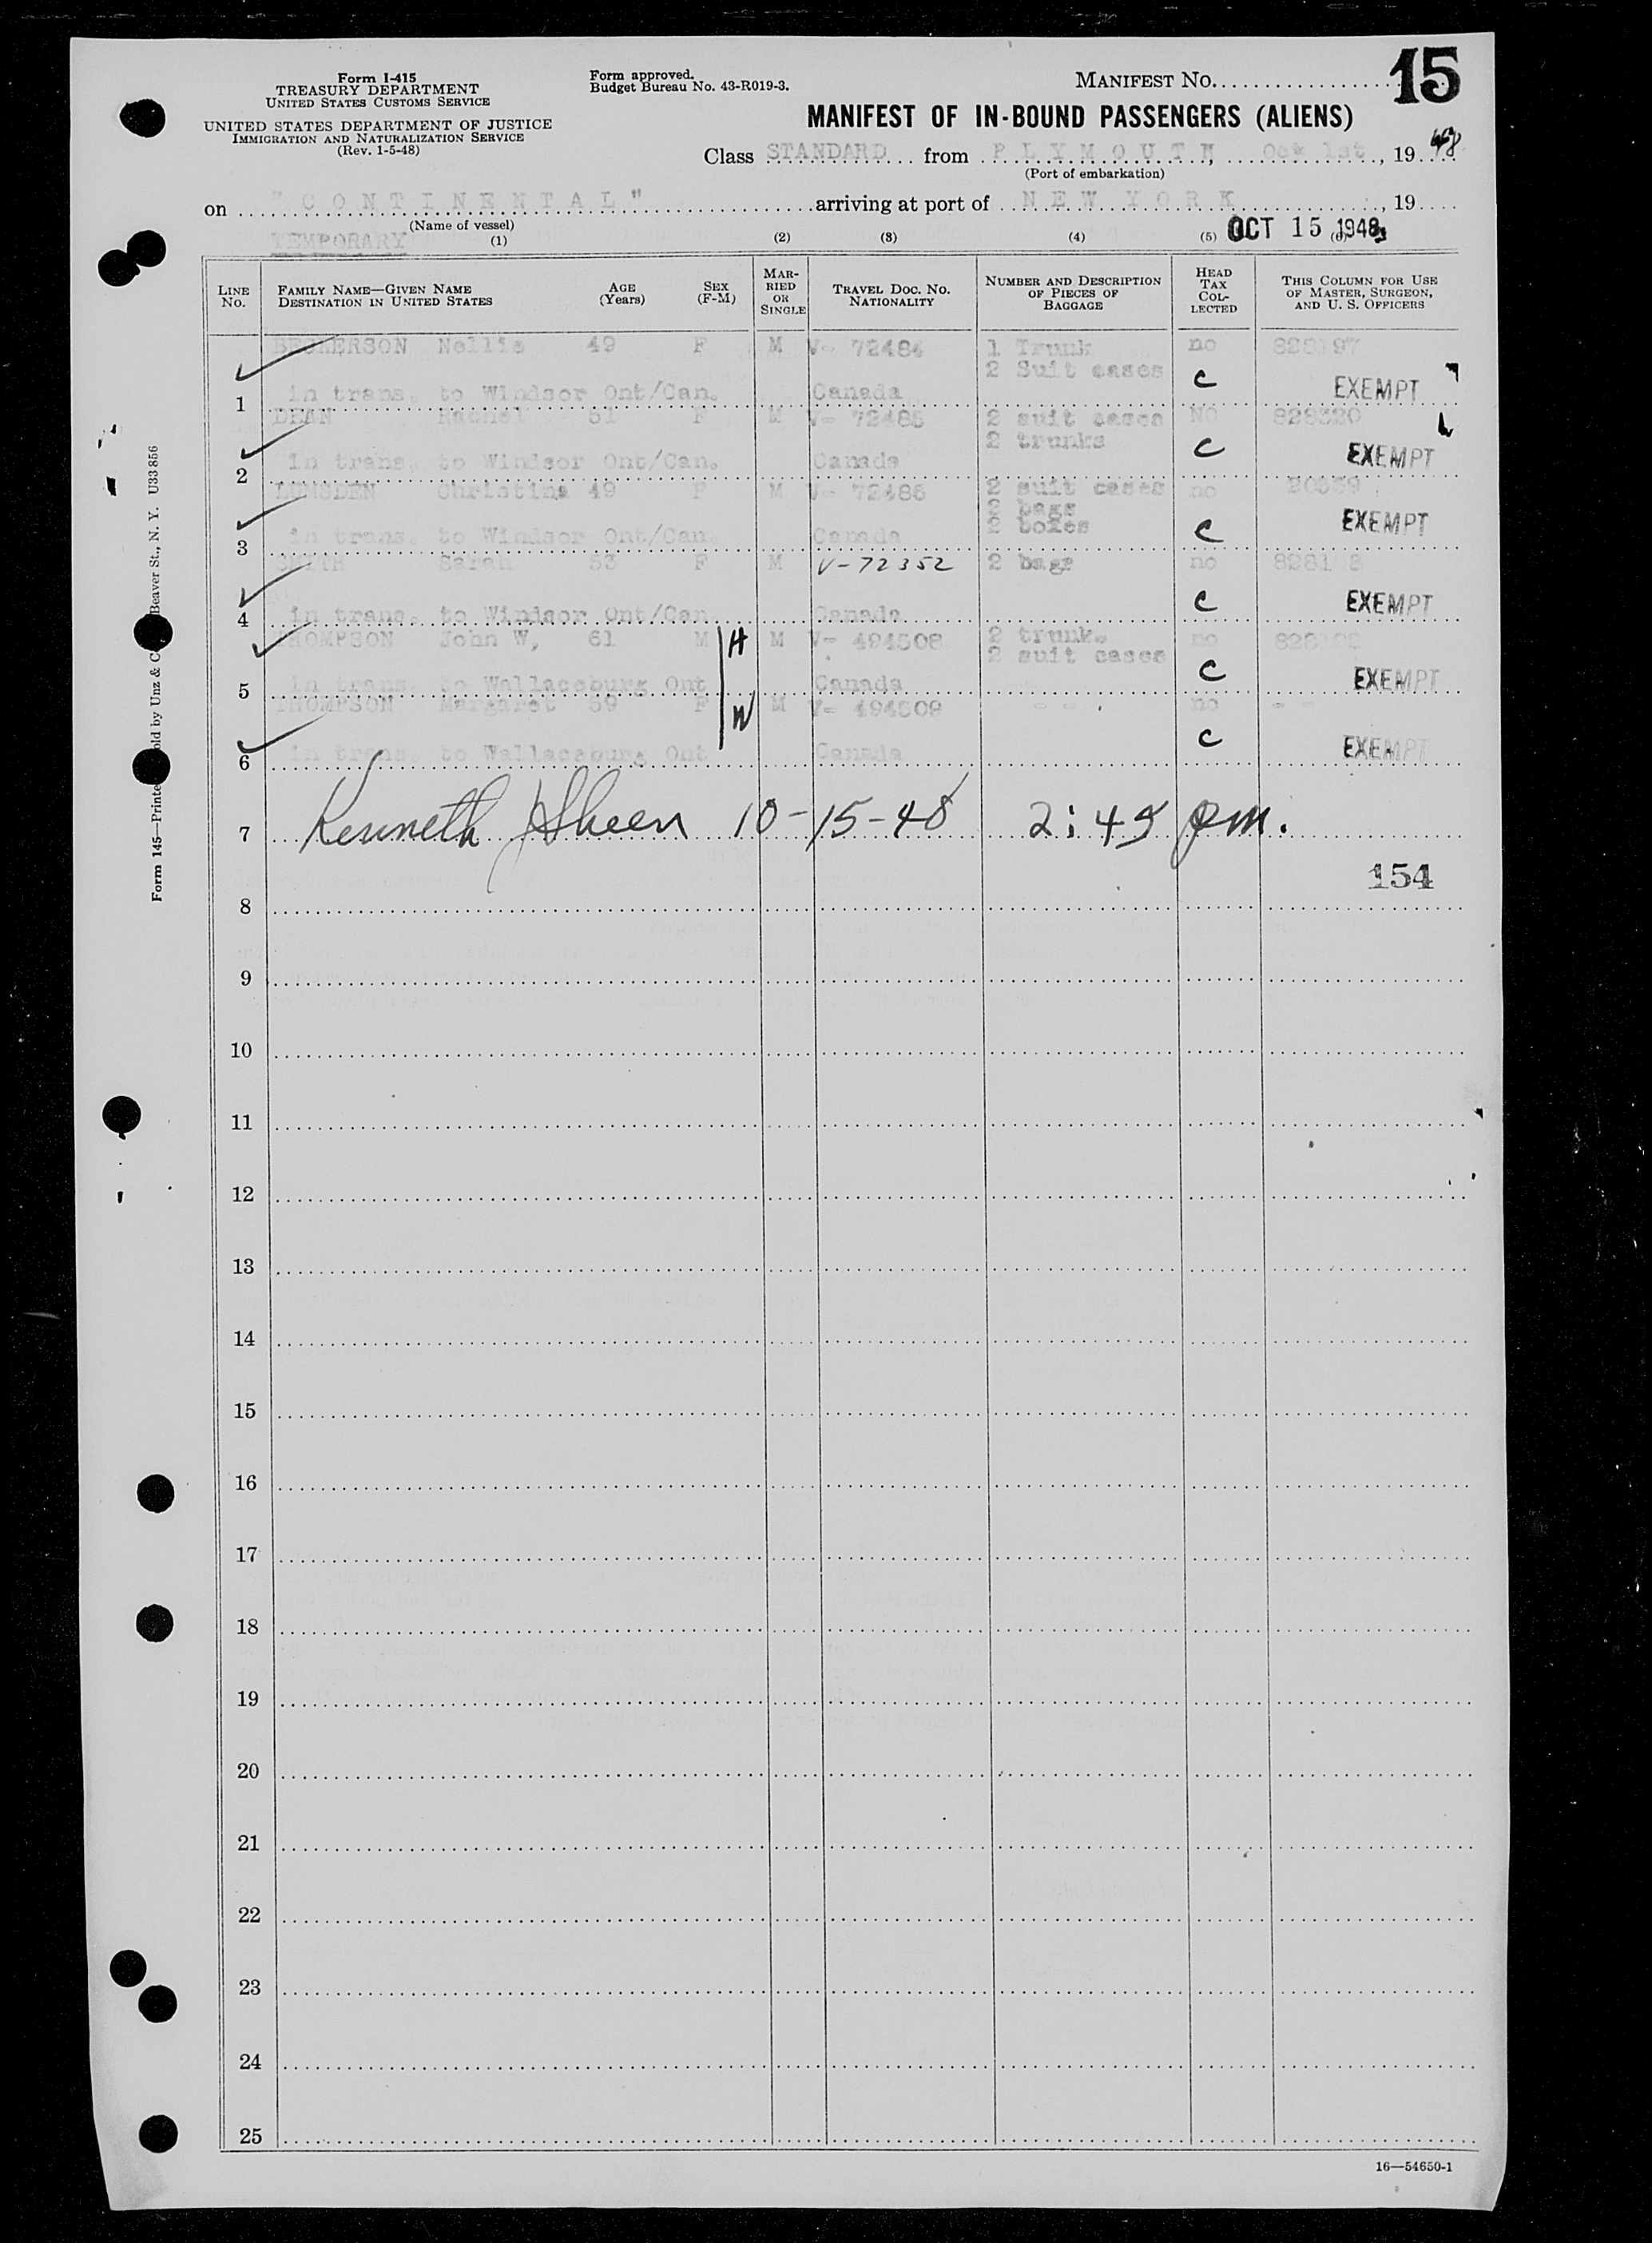 Form I-415
TREASURY DEPARTMENT
UNITED STATES CUSTOMS SERVICE
UNITED STATES DEPARTMENT OF JUSTICE
IMMIGRATION AND NATURALIZATION SERVICE
(Rev. 1-5-48)
Form approved.
Budget Bureau No. 43-R019-3.
MANIFEST No. 15
MANIFEST OF IN-BOUND PASSENGERS (ALIENS)
Class STANDARD from PLYMOUTH, Oct 1st, 1948
(Port of embarkation)
on "CONTINENTAL" arriving at port of NEW YORK, 19
(Name of vessel)
OCT 15 1948
TEMPORARY (1) (2) (3) (4) (5)
LINE No. FAMILY NAME—GIVEN NAME DESTINATION IN UNITED STATES AGE (Years) SEX (F-M) MARRIED OR SINGLE TRAVEL DOC. NO. NATIONALITY NUMBER AND DESCRIPTION OF PIECES OF BAGGAGE HEAD TAX COLLECTED THIS COLUMN FOR USE OF MASTER, SURGEON, AND U. S. OFFICERS
Nellie 49 F M V- 72484 1 Trunk no
2 Suit cases
1 in trans. to Windsor Ont/Can. Canada C EXEMPT
DEAN Rachel 51 F M V- 72485 2 suit cases NO 828320
2 trunks
2 in trans. to Windsor Ont/Can. Canada C EXEMPT
LUMSDEN Christina 49 F M V- 72486 2 suit cases no
2 bags
2 boxes
3 in trans. to Windsor Ont/Can. Canada C EXEMPT
SMITH Sarah 53 F M V-72352 2 bags no
4 in trans. to Windsor Ont/Can Canada C EXEMPT
THOMPSON John W, 61 M H M V- 494508 2 trunk. no
2 suit cases
5 in trans. to Wallaceburg Ont Canada C EXEMPT
THOMPSON Margaret 59 F W M V- 494509 - - no - -
6 in trans. to Wallaceburg Ont Canada C EXEMPT
7 Kenneth Sheen 10-15-48 2:45 pm.
154
8
9
10
11
12
13
14
15
16
17
18
19
20
21
22
23
24
25
16—54650-1
Beaver St., N. Y. U33856
Form 145—Printed
old by Unz &